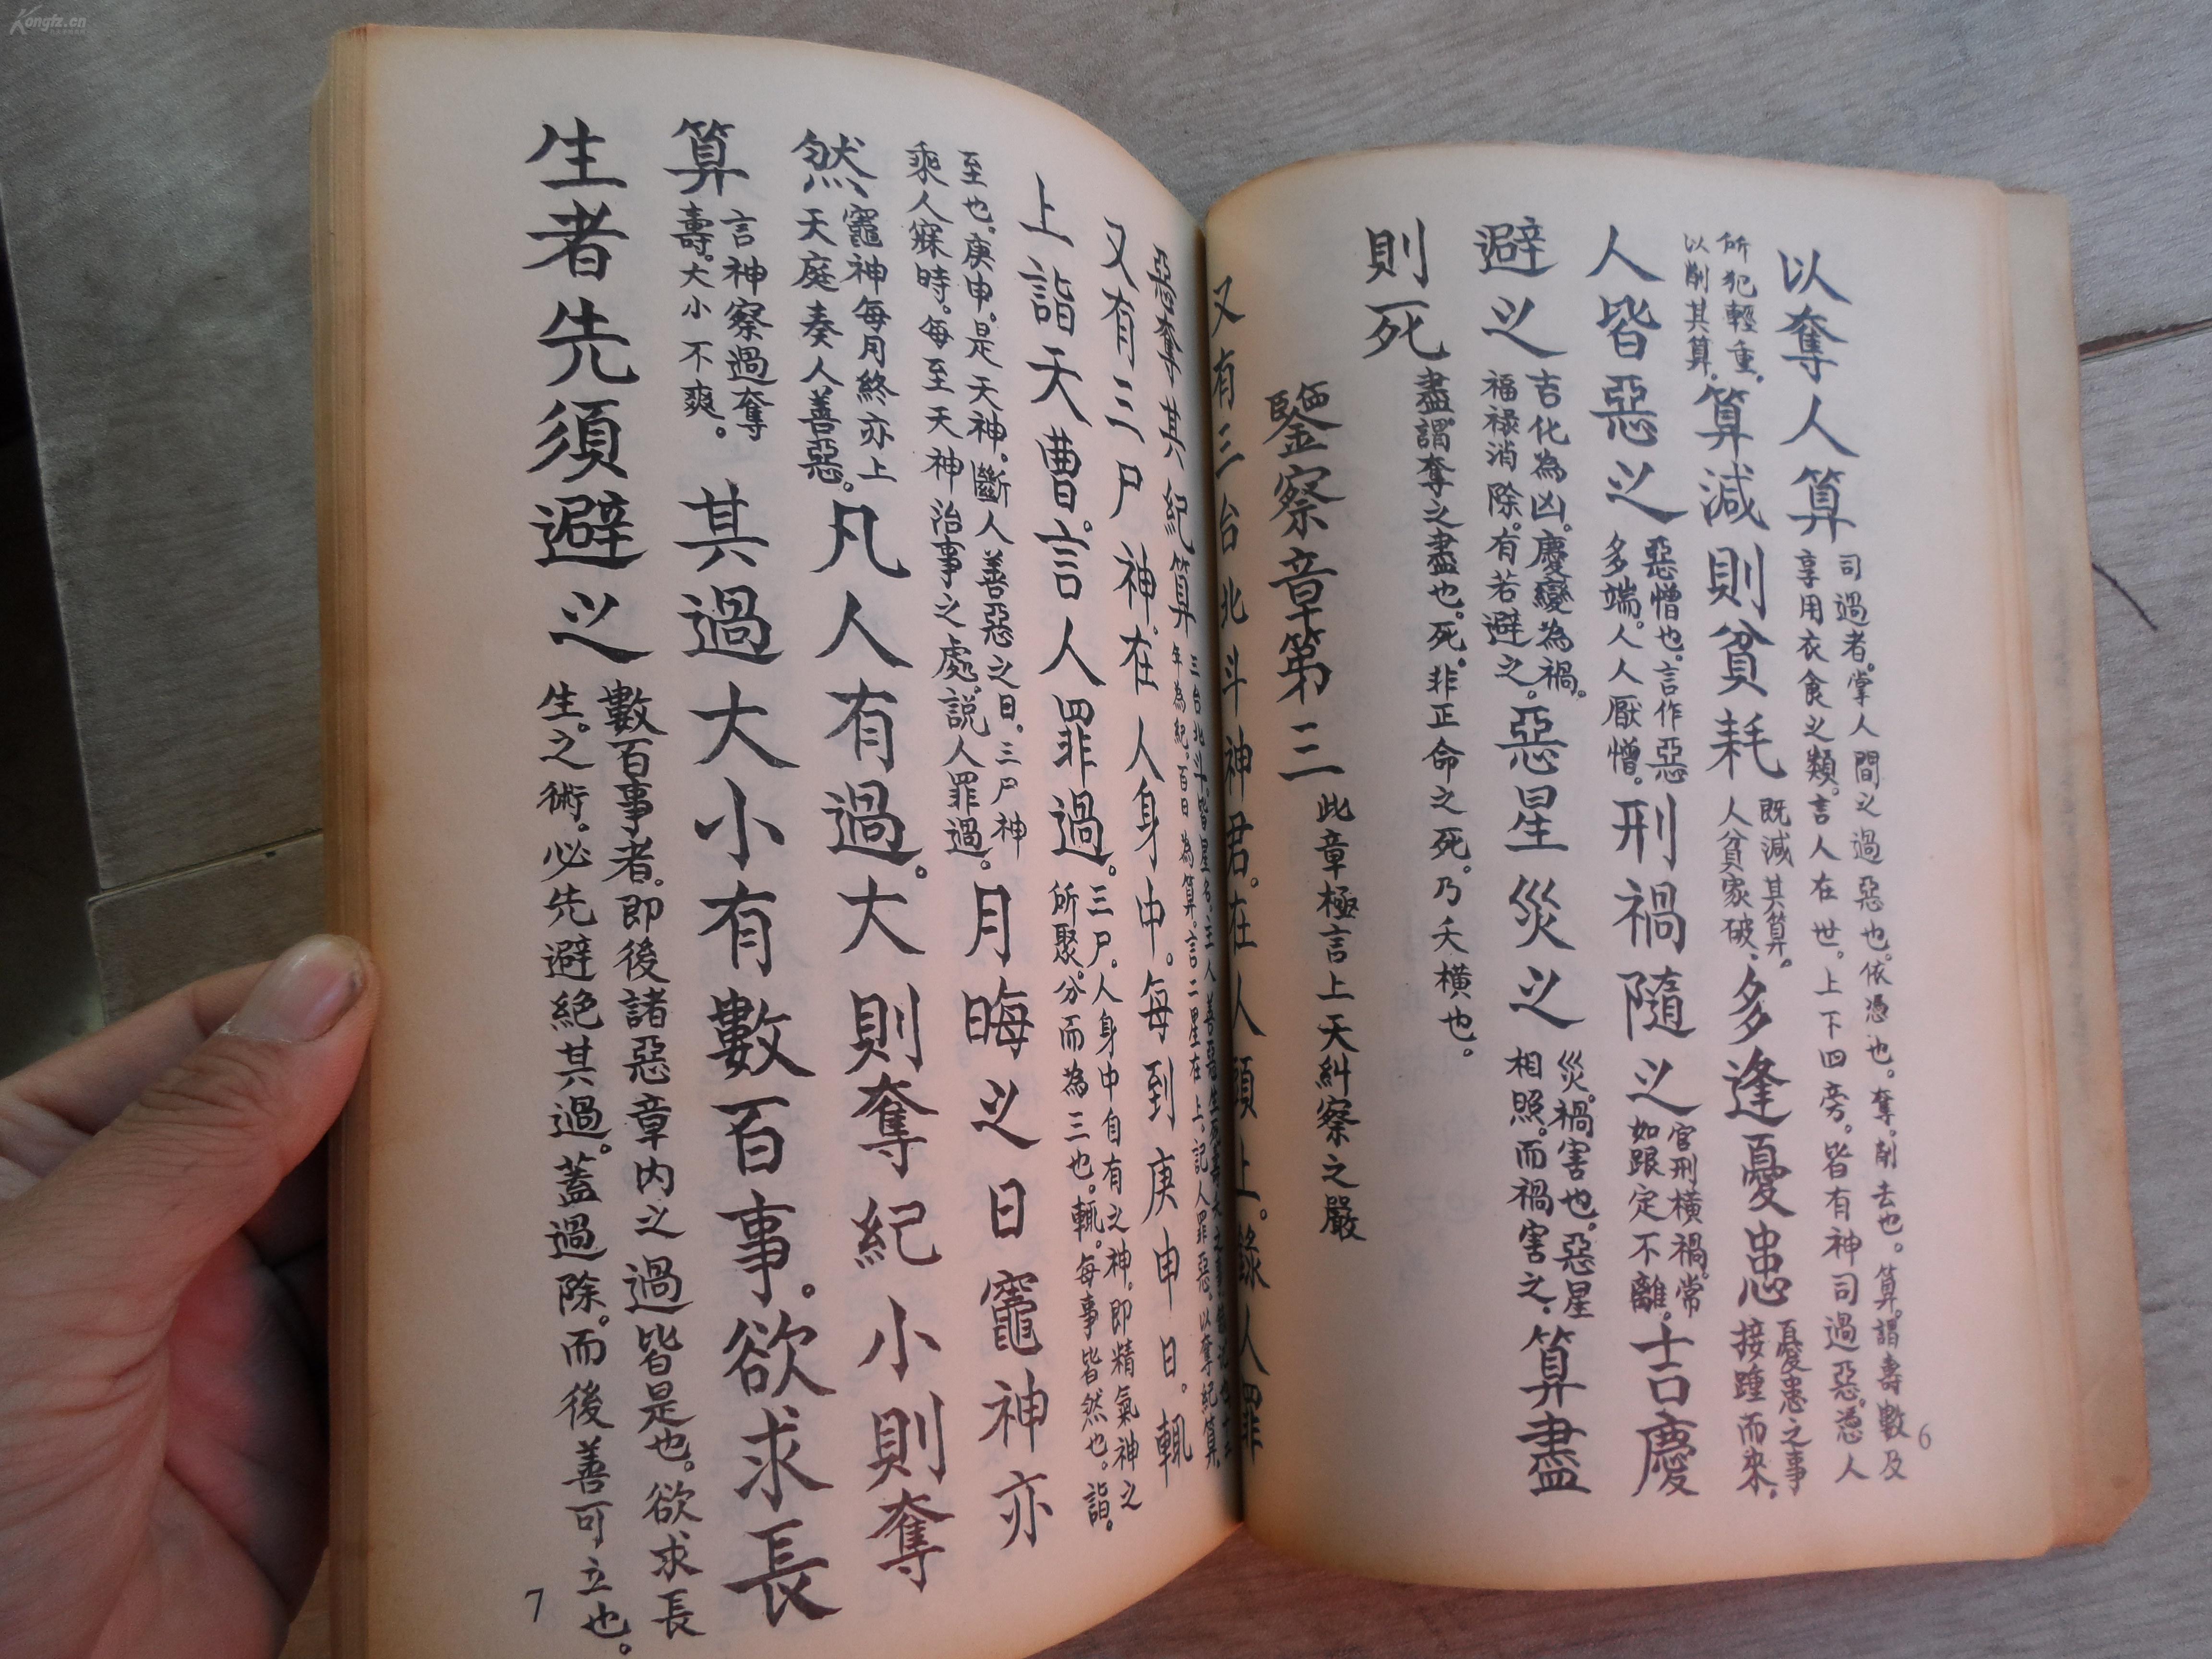 Kongfz.cn
以奪人算司過者。掌人間之過惡也。依憑也。奪。削去也。算。謂壽數及
享用衣食之類。言人在世。上下四旁。皆有神司過惡。憑人
所犯輕重。
以削其算。算減則貧耗既減其算。人貧家破。多逢憂患憂患之事接踵而來。
人皆惡之惡憎也。言作惡多端。人人厭憎。刑禍隨之官刑橫禍。常如跟定不離。吉慶
避之吉化為凶。慶變為禍。福祿消除。有若避之。惡星災之災。禍害也。惡星相照。而禍害之。算盡
則死盡謂奪之盡也。死。非正命之死。乃夭橫也。
鑒察章第三此章極言上天糾察之嚴
又有三台北斗神君。在人頭上。錄人罪
惡奪其紀算三台北斗。皆星名。主人善惡生死
年為紀。百日為算。言二星在上。記人罪惡。以奪紀算。
又有三尸神。在人身中。每到庚申日。輒
上詣天曹。言人罪過。三尸。人身中自有之神。即精氣神之
所聚。分而為三也。輒。每事皆然也。詣。
至也。庚申。是天神。斷人善惡之日。三尸神
乘人寐時。每至天神治事之處。說人罪過。月晦之日竈神亦
然竈神每月終亦上天庭奏人善惡。凡人有過。大則奪紀小則奪
算言神察過奪壽。大小不爽。其過大小有數百事。欲求長
生者先須避之數百事者。即後諸惡章內之過皆是也。欲求長
生。之術。必先避絕其過。蓋過除。而後善可立也。
6
7